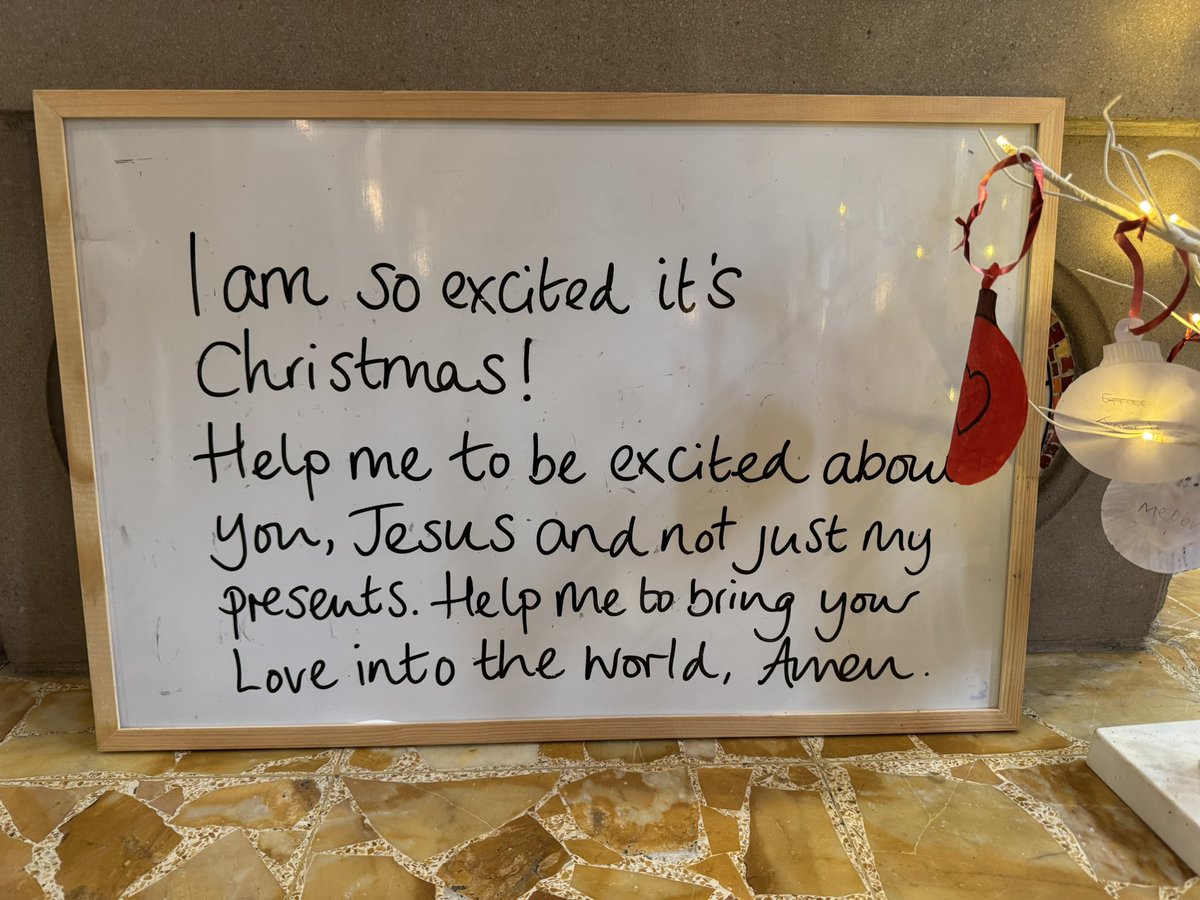 I am so excited it's
Christmas!
Help me to be excited abou
you, Jesus and not just my
presents. Help me to bring your
Love into the world, Amen.